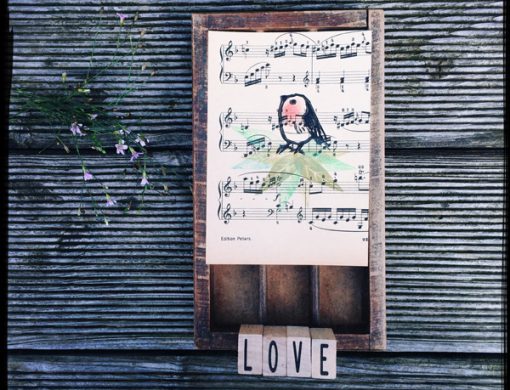 Edition Peters.
LOVE